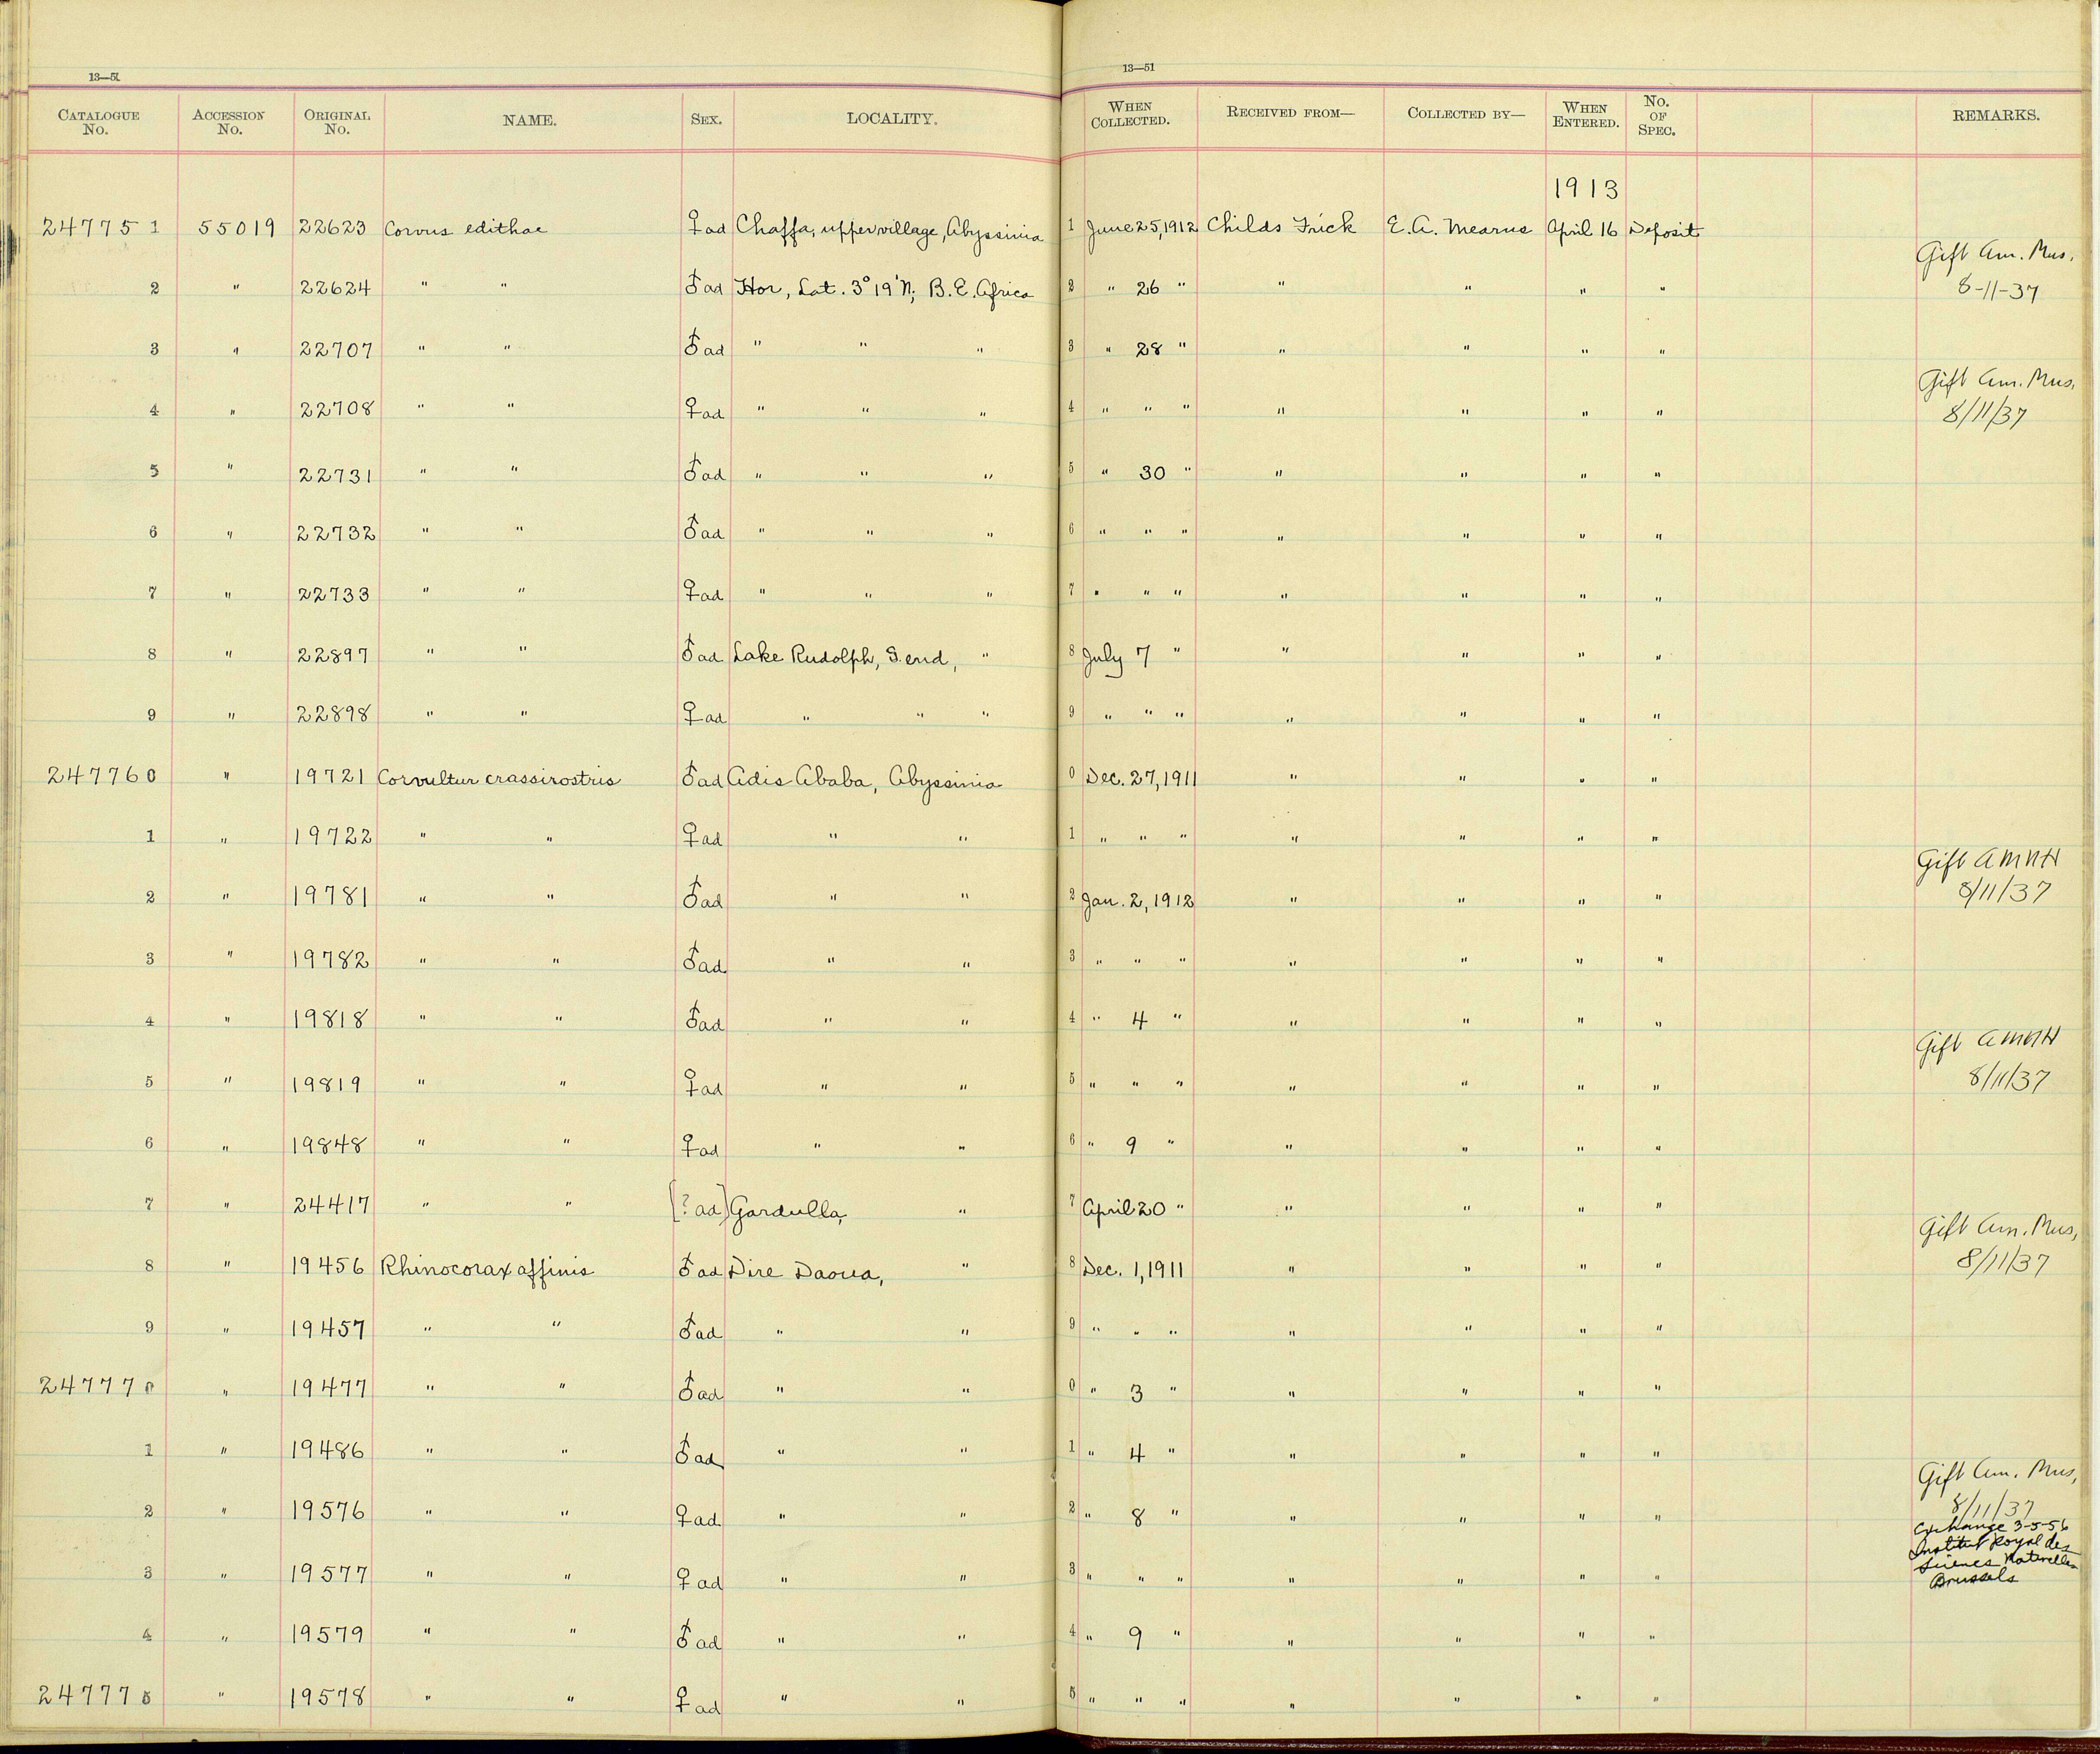 13—51 13—51
CATALOGUE No. ACCESSION No. ORIGINAL No. NAME. SEX. LOCALITY. WHEN COLLECTED. RECEIVED FROM— COLLECTED BY— WHEN ENTERED. No. OF SPEC. REMARKS.
1913
247751 55019 22623 Corvus edithae ♀ ad Chaffa, upper village, Abyssinia 1 June 25, 1912 Childs Frick E. A. Mearns April 16 Deposit
Gift Am. Mus.
2 " 22624 " " ♂ ad Hor, Lat. 3° 19' N; B. E. Africa 2 " 26 " " " " " 8-11-37
3 " 22707 " " ♂ ad " " " 3 " 28 " " " " "
Gift Am. Mus.
4 " 22708 " " ♀ ad " " " 4 " " " " " " " 8/11/37
5 " 22731 " " ♂ ad " " " 5 " 30 " " " " "
6 " 22732 " " ♂ ad " " " 6 " " " " " " "
7 " 22733 " " ♀ ad " " " 7 " " " " " " "
8 " 22897 " " ♂ ad Lake Rudolph, S. end, " 8 July 7 " " " " "
9 " 22898 " " ♀ ad " " " 9 " " " " " " "
247760 " 19721 Corvultur crassirostris ♂ ad Adis Ababa, Abyssinia 0 Dec. 27, 1911 " " " "
1 " 19722 " " ♀ ad " " 1 " " " " " " "
Gift AMNH
2 " 19781 " " ♂ ad " " 2 Jan. 2, 1912 " " " " 8/11/37
3 " 19782 " " ♂ ad " " 3 " " " " " " "
4 " 19818 " " ♂ ad " " 4 " 4 " " " " "
Gift AMNH
5 " 19819 " " ♀ ad " " 5 " " " " " " " 8/11/37
6 " 19848 " " ♀ ad " " 6 " 9 " " " " "
7 " 24417 " " [? ad] Gardulla, " 7 April 20 " " " " "
Gift Am. Mus,
8 " 19456 Rhinocorax affinis ♂ ad Dire Daoua, " 8 Dec. 1, 1911 " " " " 8/11/37
9 " 19457 " " ♂ ad " " 9 " " " " " " "
247770 " 19477 " " ♂ ad " " 0 " 3 " " " " "
1 " 19486 " " ♂ ad " " 1 " 4 " " " " "
Gift Am. Mus,
2 " 19576 " " ♀ ad " " 2 " 8 " " " " " 8/11/37
Exchange 3-5-56
Institut Royal des
Sciences Naturelles
3 " 19577 " " ♀ ad " " 3 " " " " " " " Brussels
4 " 19579 " " ♂ ad " " 4 " 9 " " " " "
247775 " 19578 " " ♀ ad " " 5 " " " " " " "